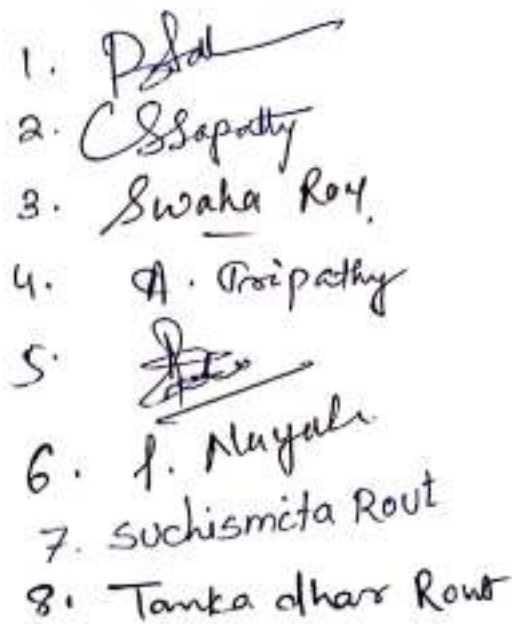 1.
2. CSSapathy
3. Swaha Roy.
4. A. Tripathy
5.
6. P. Nayak
7. suchismita Rout
8. Tanka dhar Rout